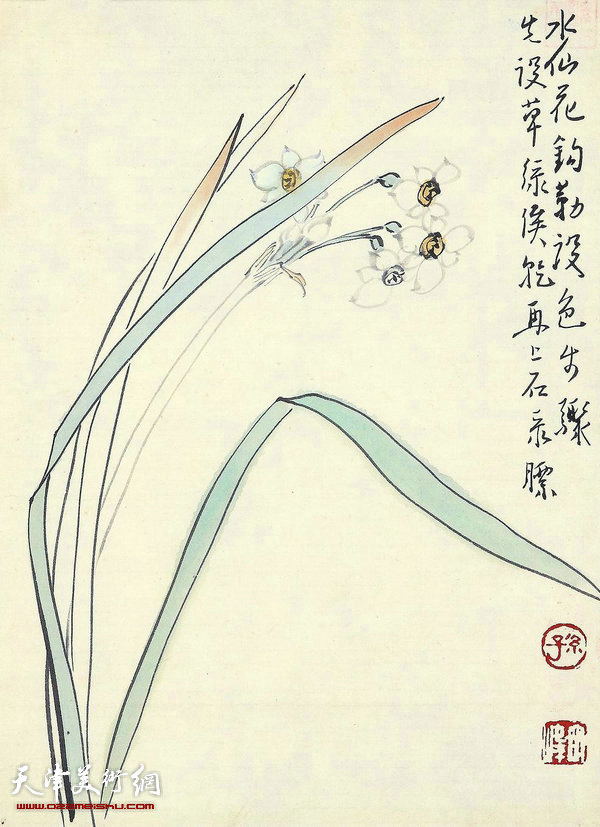 水仙花鈎勒設色步驟
先设草绿俟乾再上石录膘
孫子
天津美術網
www.ozameishu.com